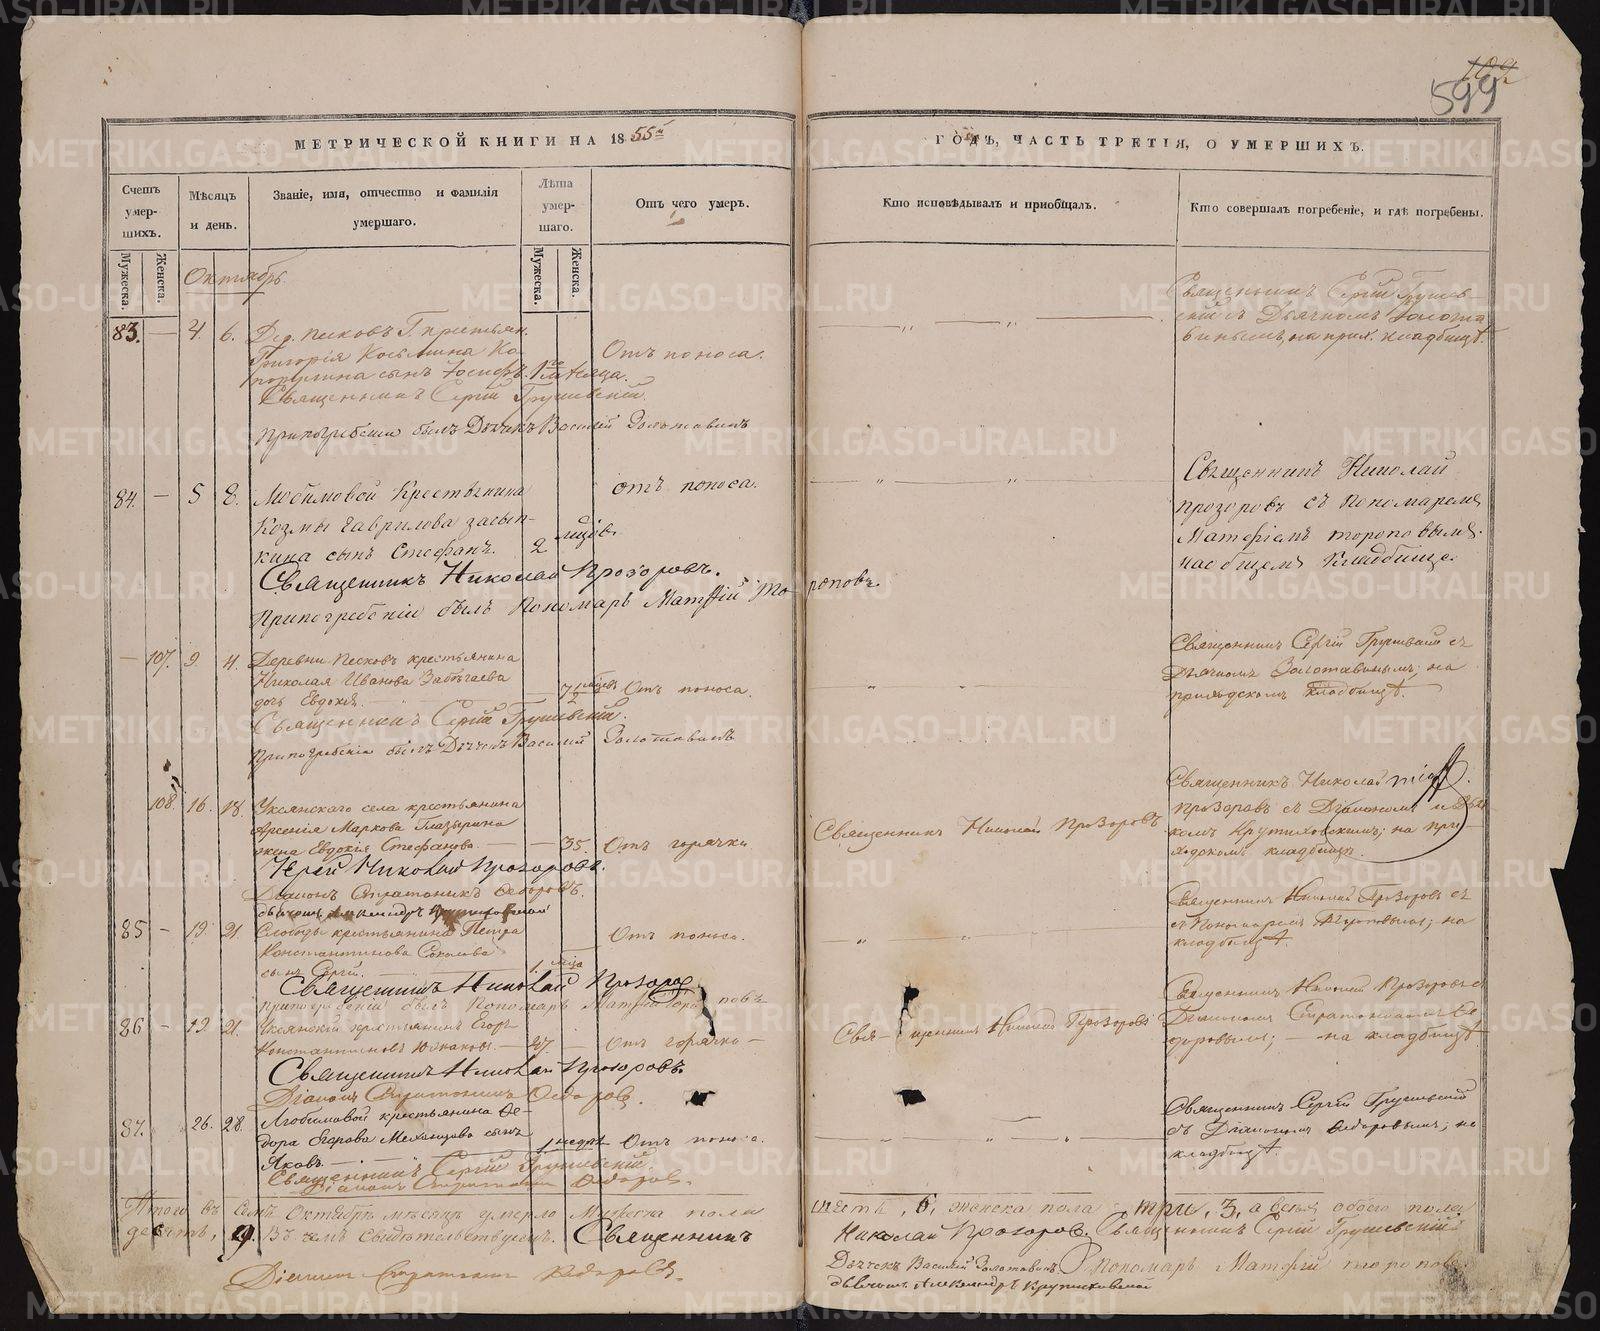 109
599
МЕТРИЧЕСКОЙ КНИГИ НА 1855й
ГОДЪ, ЧАСТЬ ТРЕТІЯ, О УМЕРШИХЪ.
Счетъ умер-шихъ.
Мѣсяцъ и день.
Званіе, имя, отчество и фамилія умершаго.
Лѣта умер-шаго.
Отъ чего умеръ.
Кто исповѣдывалъ и пріобщалъ.
Кто совершалъ погребеніе, и гдѣ погребены.
Мужеска. Женска.
Мужеска. Женска.
Октябрь
83. — 4. 6. Дер. Песковъ Г. крестьян.
Григорія Косьмина
сынъ Іосифъ. 1го мѣсяца. Отъ поноса.
Священникъ Сергій Грушевскій.
При погребеніи былъ Дьячекъ Василій Золотавинъ
Священникъ Сергій Грушев-
скій съ Дьячкомъ Золота
винымъ, на прих. кладбищѣ.
84. — 5 8. Любимовой Крестьянина
Козмы Гаврилова засып-
кина сынъ Стефанъ. 2 мцовъ. отъ поноса.
Священникъ Николай Прозоровъ.
При погребеніи былъ Пономарь Матфій Торопов.
Священникъ Николай
Прозоровъ съ Пономаремъ
Матфіемъ тороповымъ
на общемъ кладбище.
— 107. 9. 11. Деревни Песковъ крестьянина
Николая Иванова Забѣгаева
дочь Евдокія. Отъ поноса.
Священникъ Сергій Грушевскій.
При погребеніи былъ Дьячекъ Василій Золотавинъ
Священникъ Сергій Грушевскій съ
Дьячкомъ Золотавинымъ; на
приходскомъ кладбищѣ.
108. 16. 18. Уксянскаго села крестьянина
Арсенія Маркова Глазырина
жена Евдокія Стефанова. — 35. Отъ горячки
Іерей Николай Прозоровъ.
Діаконъ Стратоникъ Ѳедоровъ.
дьячекъ Александръ Крутиховскій
Священникъ Николай Прозоровъ
Священникъ Николай
Прозоровъ съ Діакономъ и Дья
комъ Крутиховскимъ; на при-
ходскомъ кладбищѣ.
85 — 19. 21. Слободы крестьянина Петра
Константинова Соколова
сынъ Сергій. 1. мца Отъ поноса.
Священникъ Николай Прозоров
При погребеніи былъ Пономарь Матфій Торо повъ
Священникъ Николай Прозоровъ с
съ Пономаремъ Тороповымъ; на
кладбищѣ.
86 — 19 21. Уксянскій крестьянинъ Егоръ
Константиновъ — 47. — Отъ горячки —
Священникъ Николай Прозоровъ.
Діаконъ Стратоникъ Ѳедоровъ.
Свя- щенникъ Николай Прозоровъ
Священникъ Николай Прозоровъ съ
Діакономъ Стратоникомъ Ѳе
доровымъ; — на кладбищѣ
87. 26. 28. Любимовой крестьянина Ѳе-
дора Егорова Мехонцова сынъ
Яковъ. 1 недѣл Отъ поноса.
Священникъ Сергій Грушевскій.
Діаконъ Стратоникъ Ѳедоровъ.
Священникъ Сергій Грушевскій
съ Діакономъ Ѳедоровымъ; на
кладбищѣ.
Итого въ семъ Октябрѣ мѣсяцѣ умерло Мужеска пола
шесть, 6, женска пола три, 3, а всѣхъ обоего пола
девять, 9. Въ чемъ свидѣтельствуемъ. Священникъ
Николай Прозоровъ. Священникъ Сергій Грушевскій
Діаконъ Стратоникъ Ѳедоровъ.
Дьячекъ Василій Золотавинъ Пономарь Матфій торопов
дьячекъ Александръ Крутиховской
METRIKI.GASO-URAL.RU